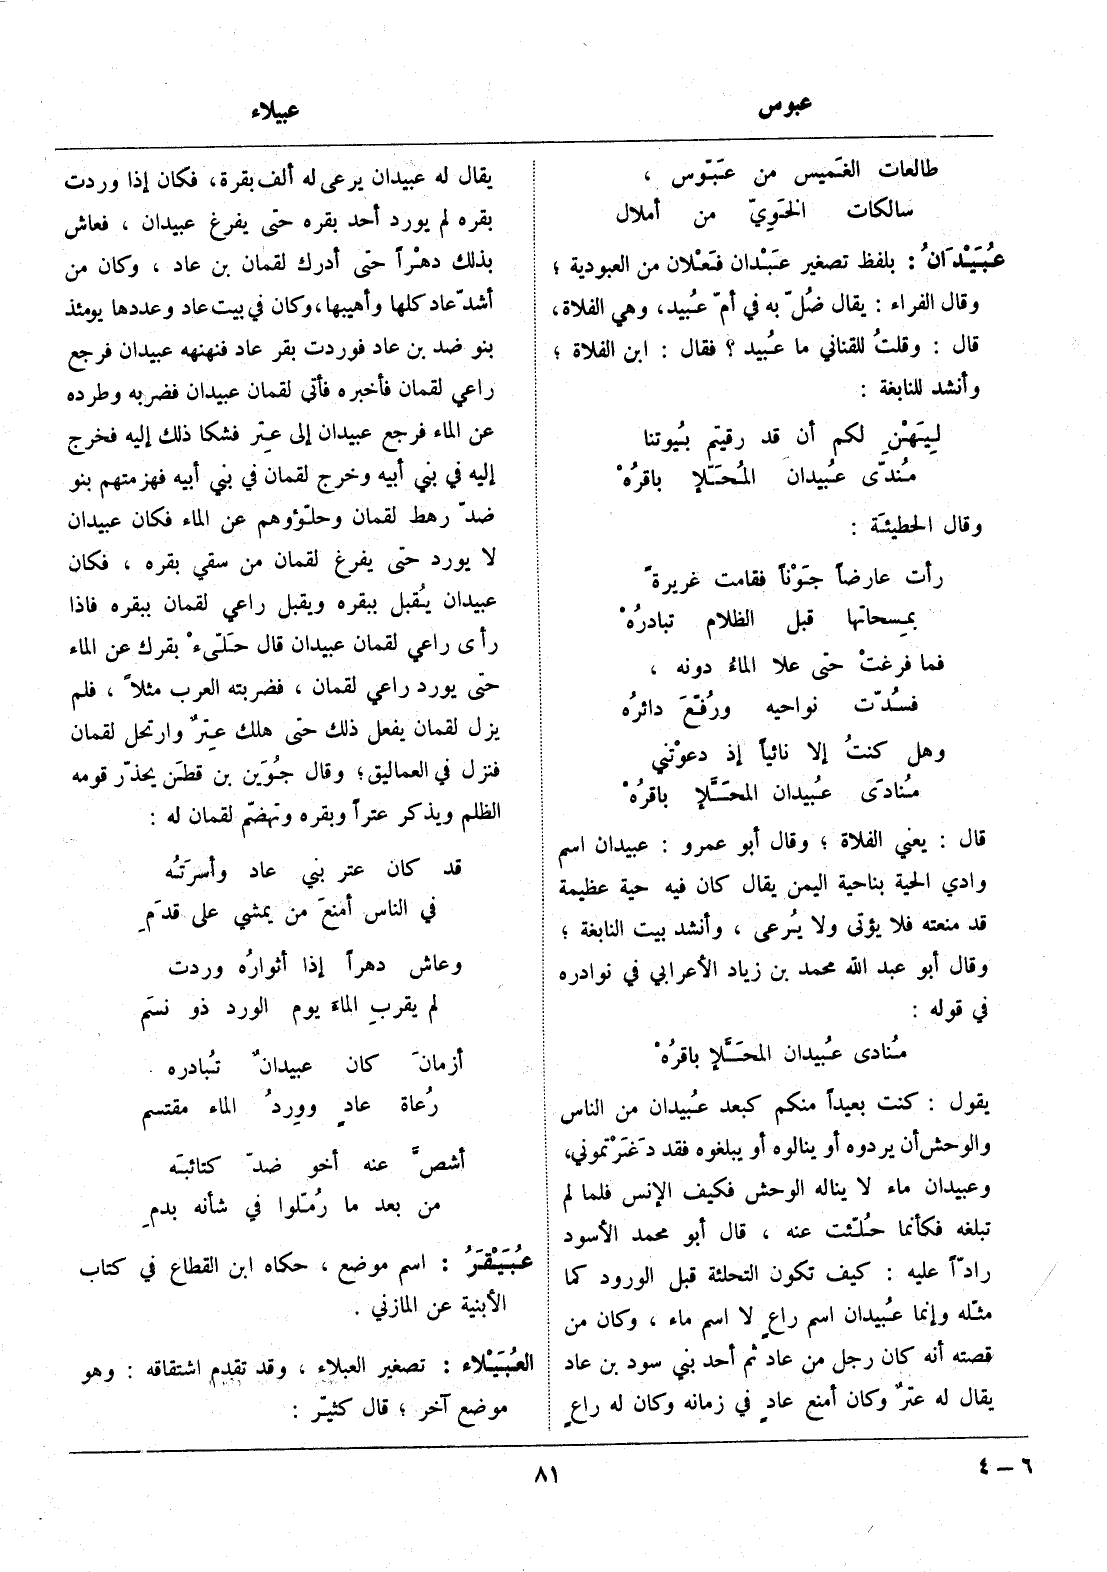 عبوس
عبيلاء
طالعات الغَميس من عَبّوس ،
سالكات الخَوِيّ من أملال
عُبَيْدَانُ : بلفظ تصغير عَبْدان فَعْلان من العبودية ؛
وقال الفراء : يقال ضُلّ به في أمّ عُبيد، وهي الفلاة،
قال : وقلتُ للقناني ما عُبيد ؟ فقال : ابن الفلاة ؛
وأنشد للنابغة :
لِيَهْنِ لكم أن قد رقيتم بُيوتنا
مُندّى عُبيدان المُحَلّإ باقرُهْ
وقال الحطيئة :
رأت عارضاً جَوْناً فقامت غريرةً
بمِسحاتها قبل الظلام تبادرُهْ
فما فرغتْ حتى علا الماءُ دونه ،
فسُدّت نواحيه ورُفّعَ دائرُه
وهل كنتُ إلا نائياً إذ دعوْتني
مُنادَى عُبيدان المحَلَّإ باقرُهْ
قال : يعني الفلاة ؛ وقال أبو عمرو : عبيدان اسم
وادي الحية بناحية اليمن يقال كان فيه حية عظيمة
قد منعته فلا يؤتى ولا يُرعى ، وأنشد بيت النابغة ؛
وقال أبو عبد الله محمد بن زياد الأعرابي في نوادره
في قوله :
مُنادى عُبيدان المحَلَّإ باقرُهْ
يقول : كنت بعيداً منكم كبعد عُبيدان من الناس
والوحش أن يردوه أو ينالوه أو يبلغوه فقد دَغَرْتموني،
وعبيدان ماء لا يناله الوحش فكيف الإنس فلما لم
تبلغه فكأنما حُلّئت عنه ، قال أبو محمد الأسود
رادّاً عليه : كيف تكون التحلئة قبل الورود كما
مثّله وإنما عُبيدان اسم راعٍ لا اسم ماء ، وكان من
قصته أنه كان رجل من عاد ثم أحد بني سود بن عاد
يقال له عترٌ وكان أمنع عادٍ في زمانه وكان له راعٍ
يقال له عبيدان يرعى له ألف بقرة، فكان إذا وردت
بقره لم يورد أحد بقره حتى يفرغ عبيدان ، فعاش
بذلك دهْراً حتى أدرك لقمان بن عاد ، وكان من
أشدّ عاد كلها وأهيبها، وكان في بيت عاد وعددها يومئذ
بنو ضد بن عاد فوردت بقر عاد فنهنهه عبيدان فرجع
راعي لقمان فأخبره فأتى لقمان عبيدان فضربه وطرده
عن الماء فرجع عبيدان إلى عِتر فشكا ذلك إليه فخرج
إليه في بني أبيه وخرج لقمان في بني أبيه فهزمتهم بنو
ضدّ رهط لقمان وحلّؤوهم عن الماء فكان عبيدان
لا يورد حتى يفرغ لقمان من سقي بقره ، فكان
عبيدان يُقبل ببقره ويقبل راعي لقمان ببقره فاذا
رأى راعي لقمان عبيدان قال حَلّيءْ بقرك عن الماء
حتى يورد راعي لقمان ، فضربته العرب مثلاً ، فلم
يزل لقمان يفعل ذلك حتى هلك عِترٌ وارتحل لقمان
فنزل في العماليق؛ وقال جُوَين بن قطَن يحذّر قومه
الظلم ويذكر عتراً وبقره وتهضّم لقمان له :
قد كان عتر بني عاد وأسرَتُه
في الناس أمنعَ من يمشي على قدَمِ
وعاش دهراً إذا أثوارُه وردت
لم يقربِ الماءَ يوم الورد ذو نسَم
أزمانَ كان عبيدانٌ تُبادره
رُعاة عادٍ ووِردُ الماء مقتسم
أشصَّ عنه أخو ضدّ كتائبَه
من بعد ما رُمّلوا في شأنه بدمِ
عُبَيْقَرُ : اسم موضع ، حكاه ابن القطاع في كتاب
الأبنية عن المازني .
العُبَيْلاء : تصغير العبلاء ، وقد تقدم اشتقاقه : وهو
موضع آخر ؛ قال كثيّر :
٦ – ٤
٨١